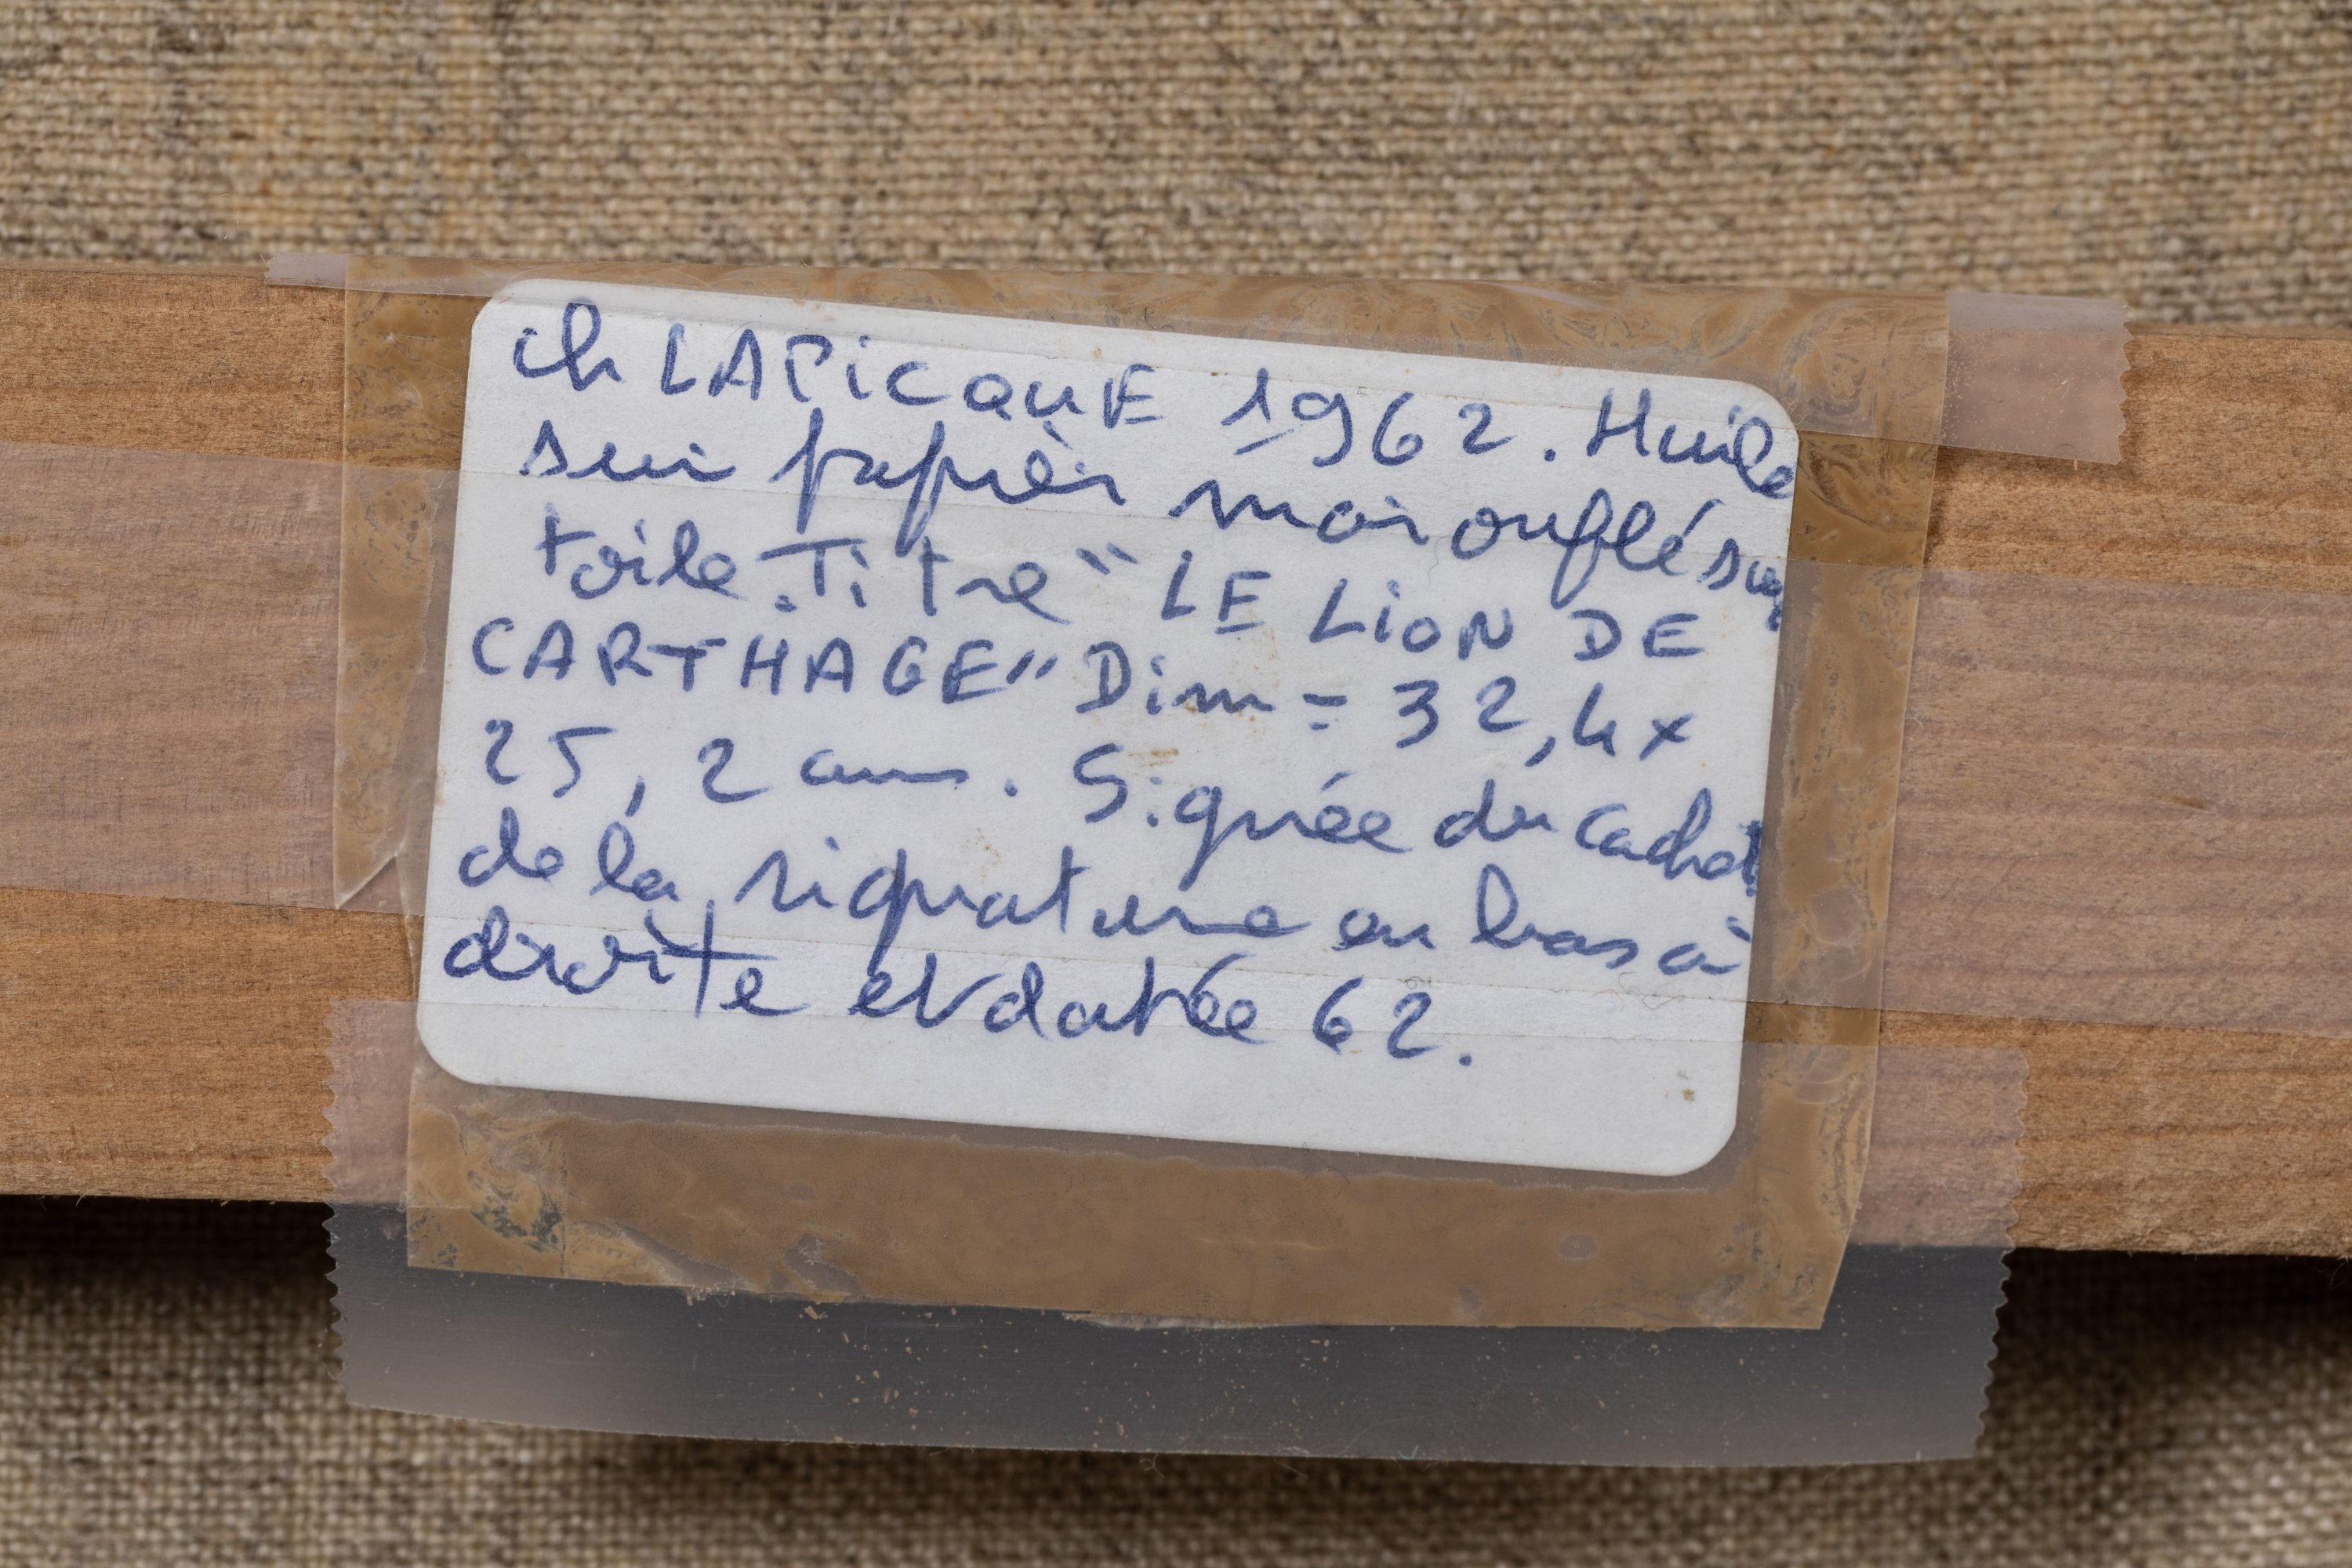 Ch LAPiCQUE 1962. Huile
sur papier marouflé sur
toile. Titre "LE LiON DE
CARTHAGE" Dim = 32,4 x
25,2 cm. Signée du cachet
de la signature en bas à
droite et datée 62.